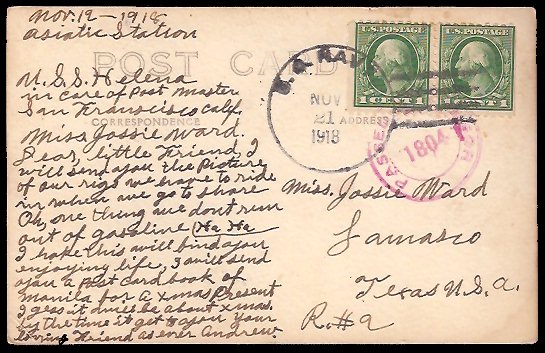 Nov-12-1918
Asiatic Station
POST CARD
U.S.S. Helena
in care of Post Master
San Francisco Calif,
CORRESPONDENCE
ADDRESS
Miss Jossie Ward.
Dear, little Friend, I
will send you the Picture
of our rigs we have to ride
in when we go to shore
Oh, one thing we dont run
out of gasoline (Ha Ha
I hope this will find you
enjoying life, I will send
you a Post Card book of
manila for a xmas Present
I geas it will be about xmas.
by the time it get to you your
loving Friend as ever Andrew.
U.S. NAVY
NOV
21
1918
U.S. POSTAGE
1 CENT 1
U.S. POSTAGE
1 CENT 1
PASSED
CENSOR
1804
Miss, Jossie Ward
Lamasco
Texas U.S.A.
R.#2